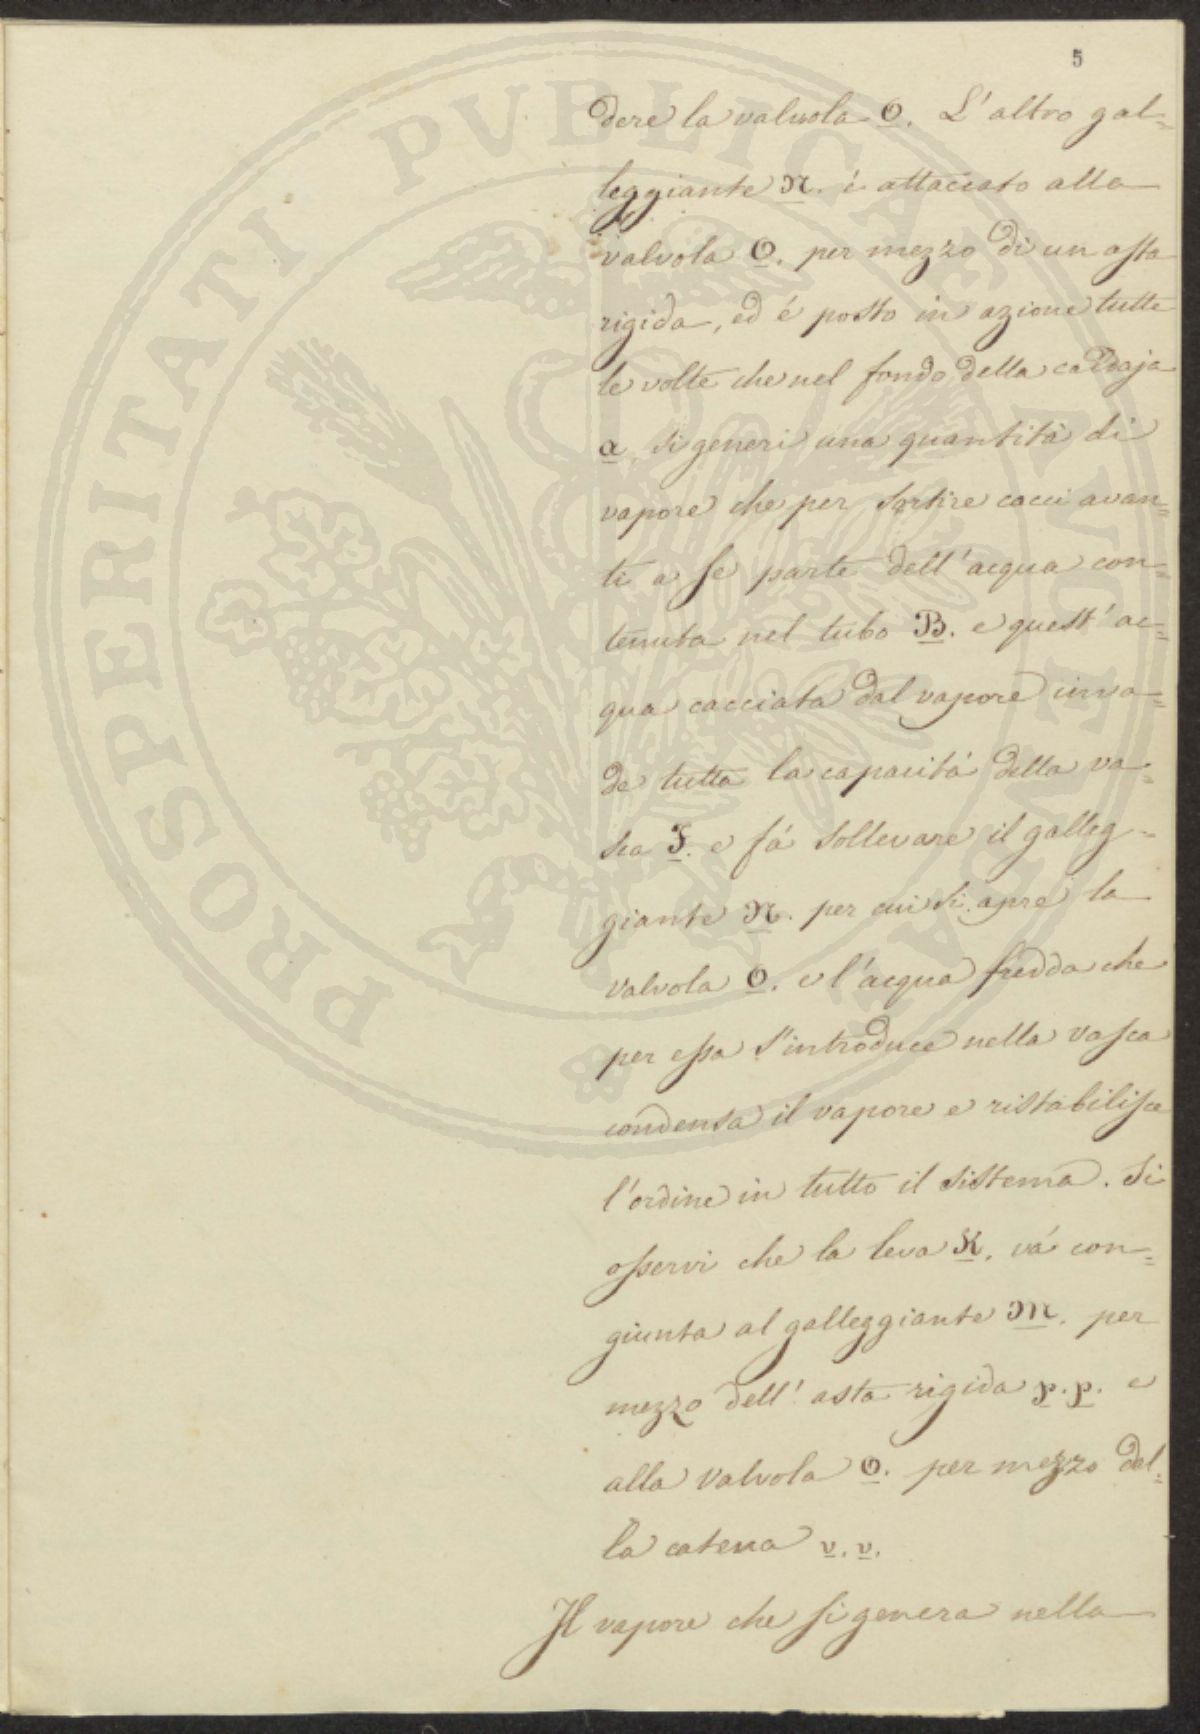 5
dere la valuola O. L'altro gal=
leggiante N. é attaccato alla
valvola O. per mezzo di un asta
rigida, ed é posto in azione tutte
le volte che nel fondo della caldaja
a, si generi una quantità di
vapore che per sortire cacci avan=
ti a se parte dell'acqua con=
tenuta nel tubo B. e quest'ac=
qua cacciata dal vapore inva=
de tutta la capacitá della va=
sca F. e fá sollevare il galleg=
giante N. per cui si apre la
valvola O. e l'acqua fredda che
per essa s'introduce nella vasca
condensa il vapore e ristabilisce
l'ordine in tutto il sistema. Si
osservi che la leva K. vá con=
giunta al galleggiante M. per
mezzo dell'asta rigida p.p. e
alla valvola O. per mezzo del=
la catena v.v.
Il vapore che si genera nella
PROSPERITATI PVBLICAE AVGENDAE